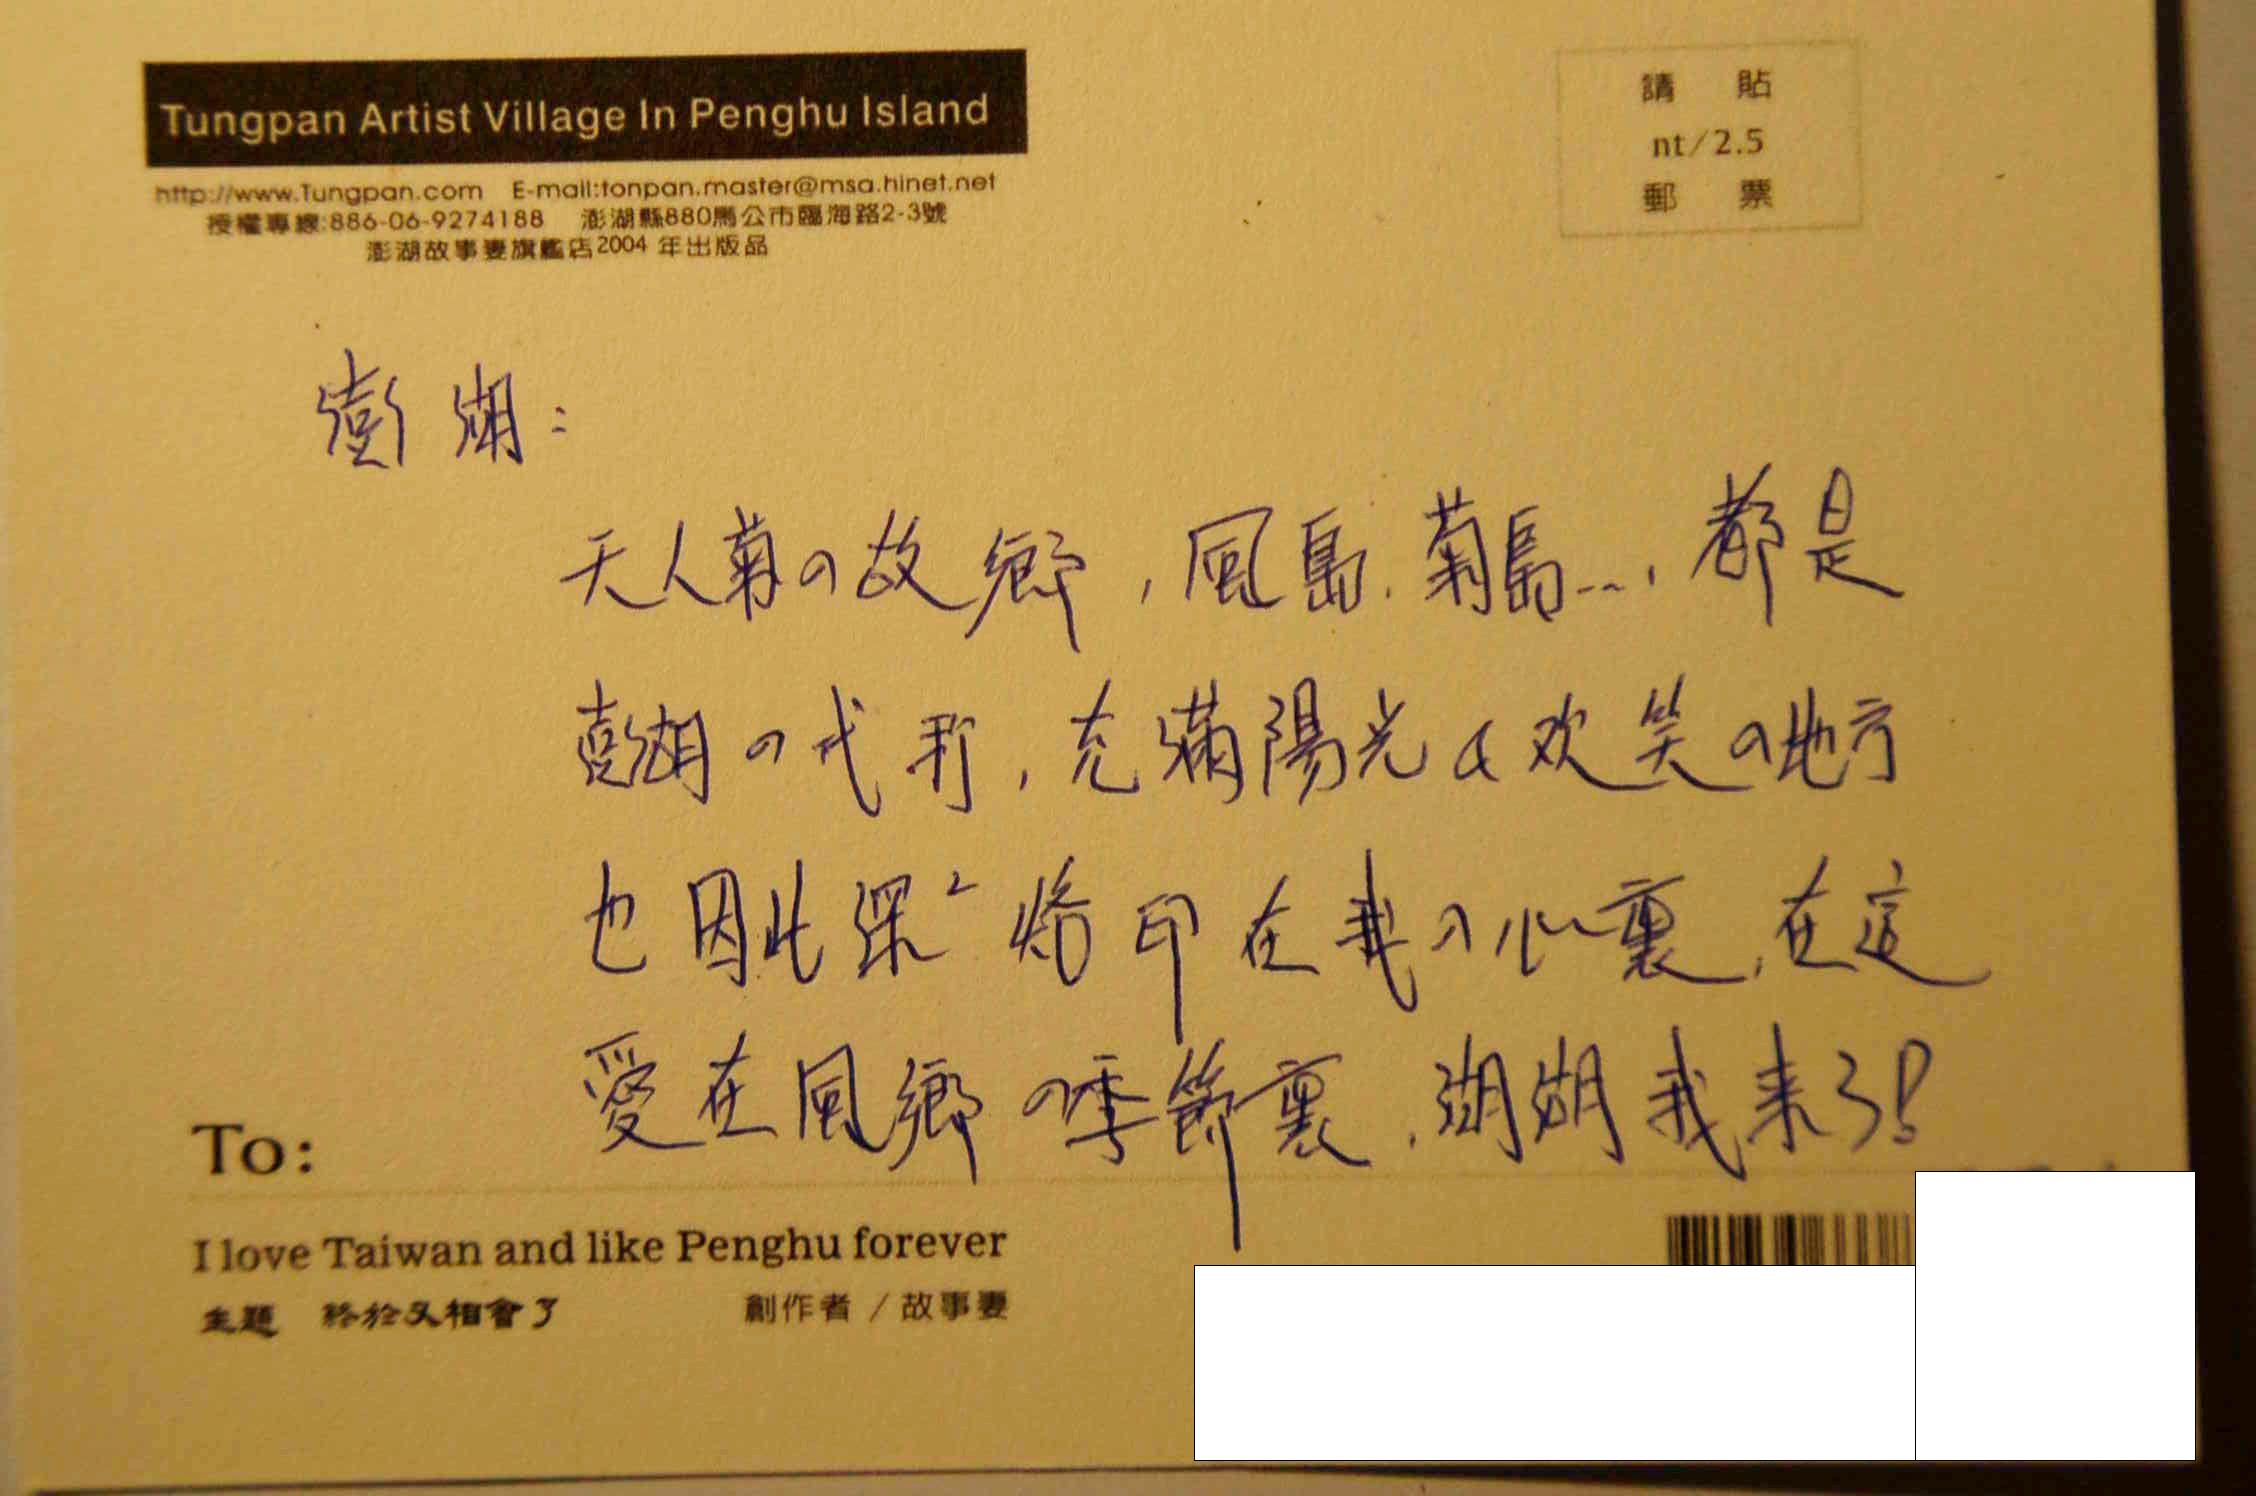 Tungpan Artist Village In Penghu Island
http://www.Tungpan.com E-mail:tonpan.master@msa.hinet.net
授權專線:886-06-9274188 澎湖縣880馬公市臨海路2-3號
澎湖故事妻旗艦店2004 年出版品
請 貼
nt/2.5
郵 票
澎湖:
天人菊の故鄉,風島、菊島...,都是
澎湖の代,充滿陽光&欢笑の地方
也因此深²烙印在我の心裏,在這
愛在風鄉の季節裏,湖湖我来了!
To:
I love Taiwan and like Penghu forever
主題 終於又相會了 創作者 / 故事妻